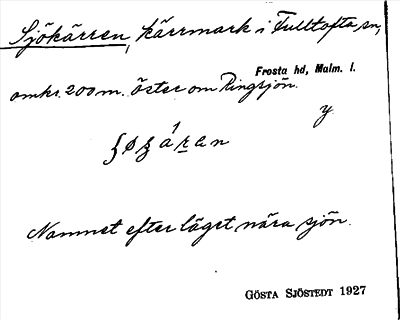 Sjökärren, kärrmark i Fulltofta sn,
Frosta hd, Malm. l.
omkr. 200 m. öster om Ringsjön.
y
Namnet efter läget nära sjön.
GÖSTA SJÖSTEDT 1927